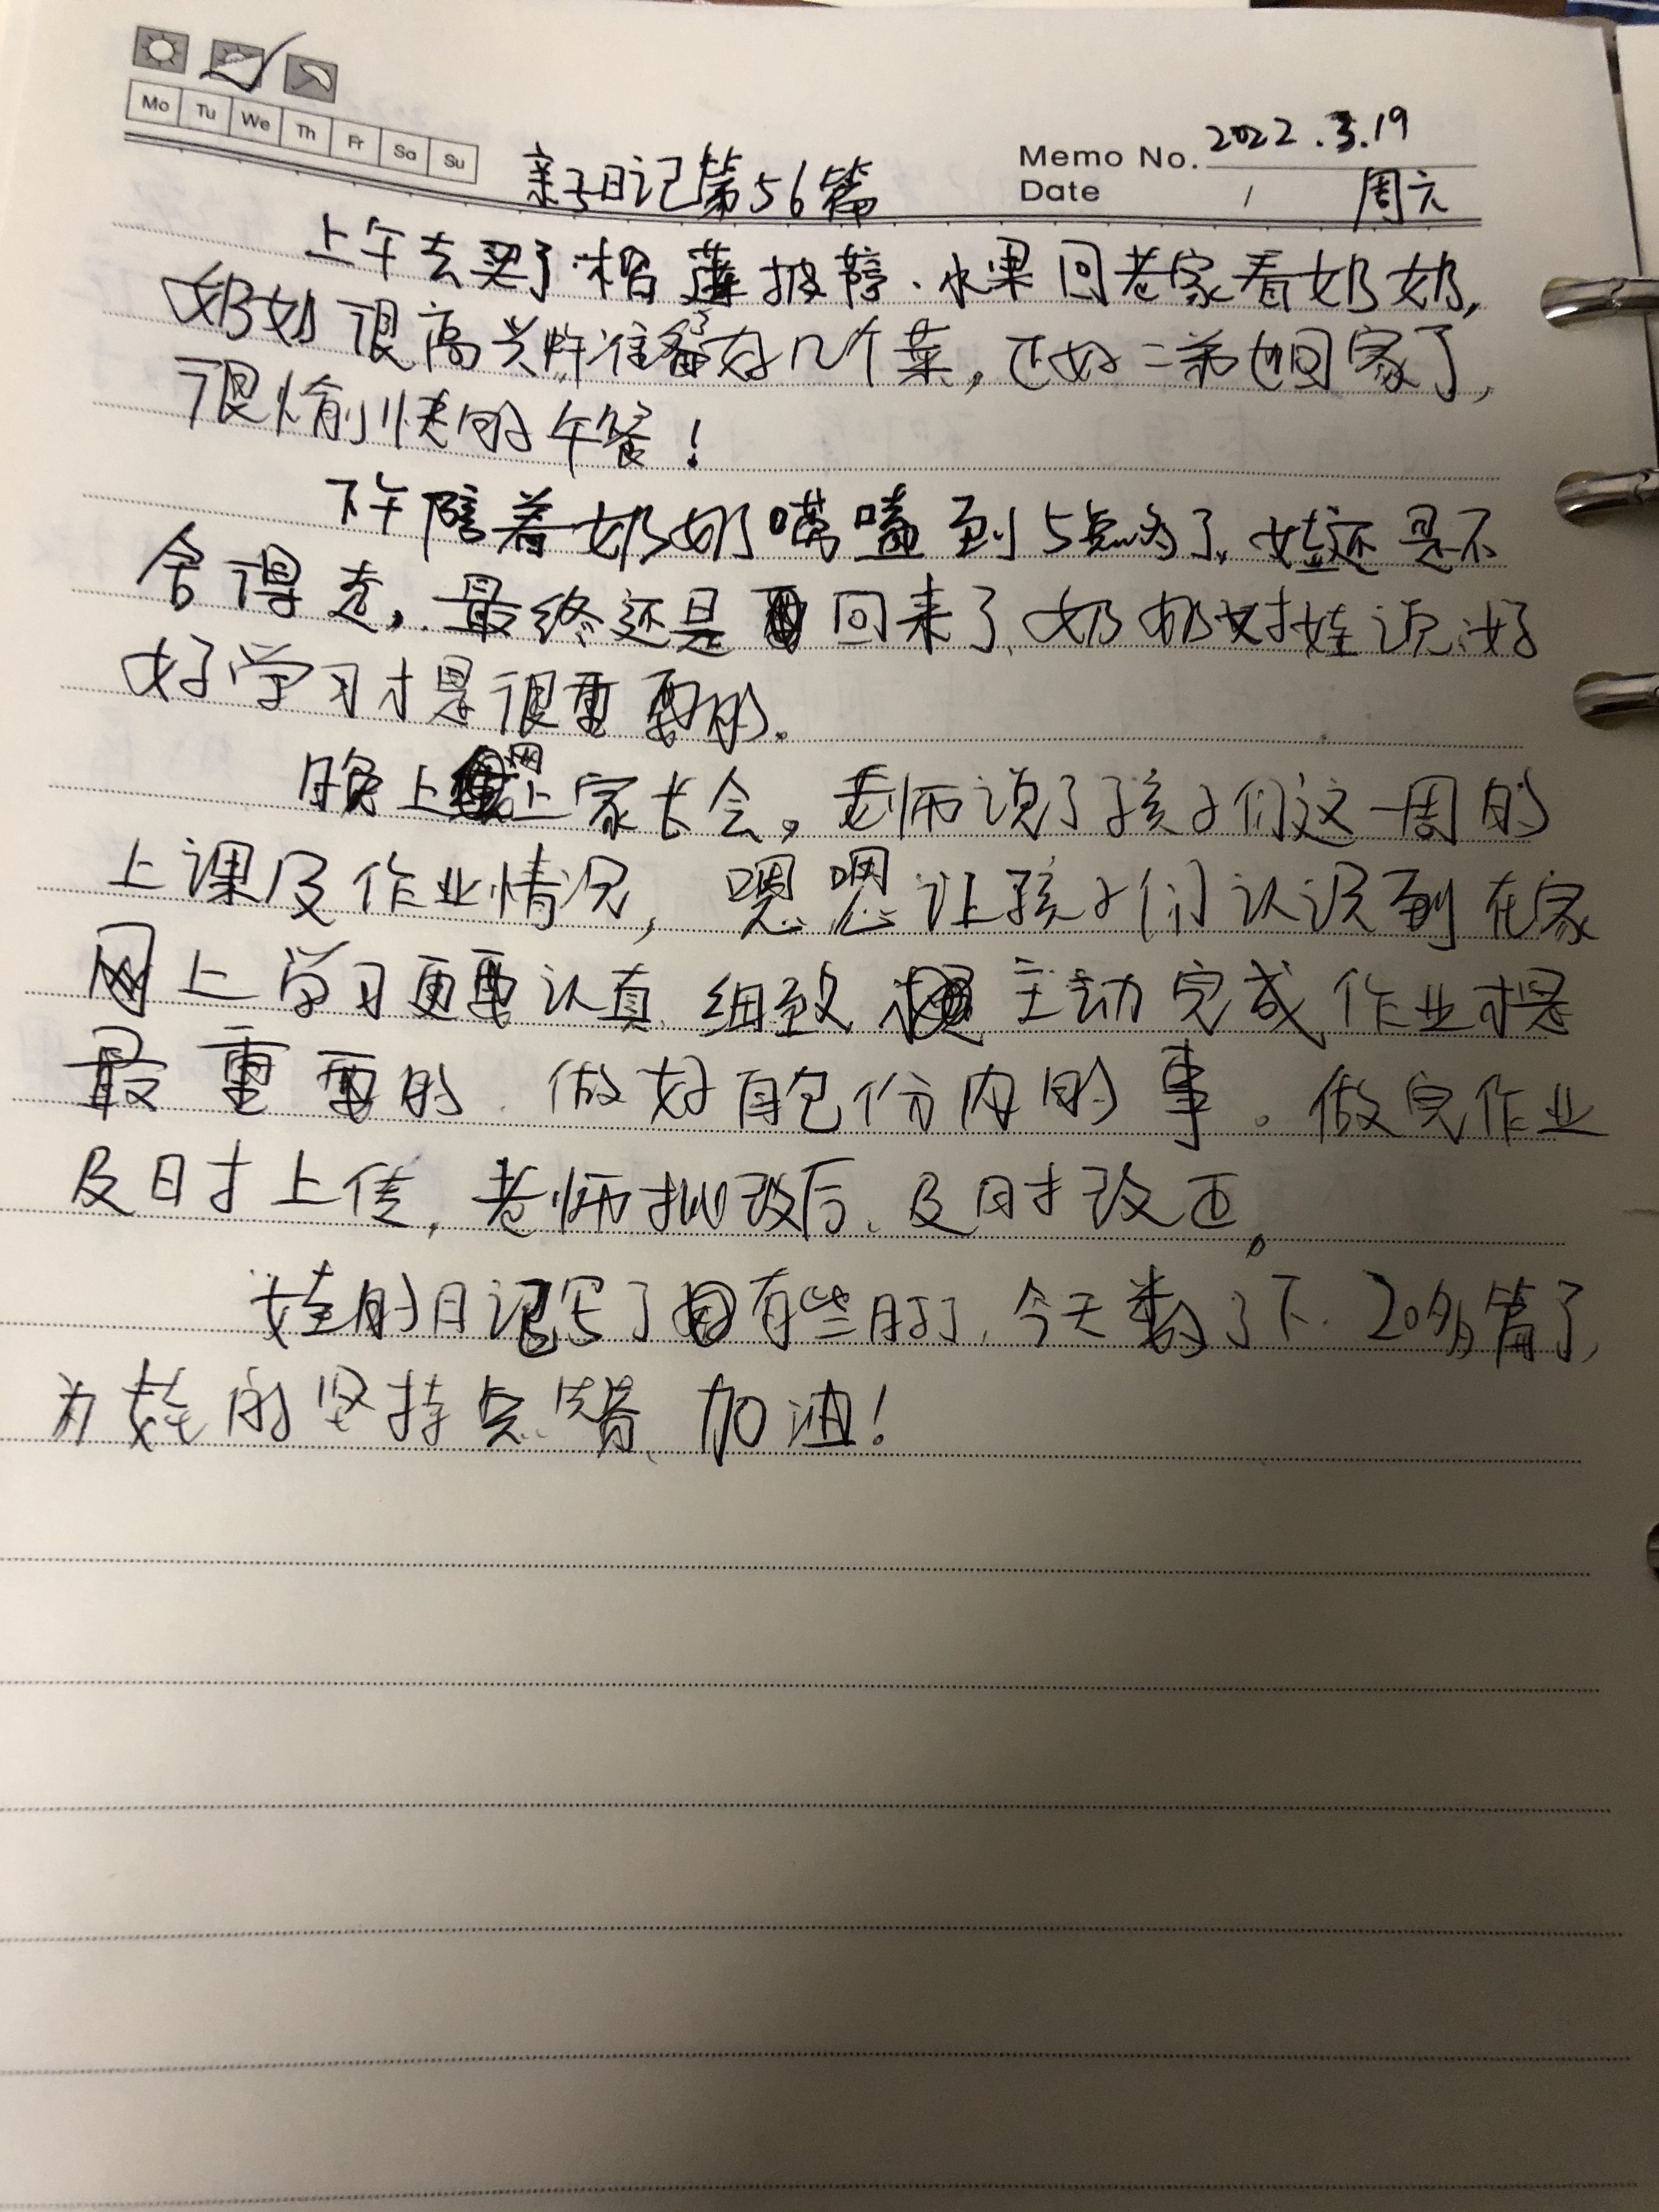 Mo Tu We Th Fr Sa Su
Memo No. 2022.3.19
Date / 周六
亲子日记第56篇
上午去买了榴莲披萨、水果回老家看奶奶,
奶奶很高兴炸准备了好几个菜,正好二弟也回家了,
很愉快的午餐!
下午陪着奶奶唠嗑到5点多了,娃还是不
舍得走,最终还是回来了,奶奶对娃说:好
好学习才是很重要的。
晚上网上家长会,老师说了孩子们这一周的
上课及作业情况,嗯嗯让孩子们认识到在家
网上学习更要认真、细致,主动完成作业才是
最重要的、做好自己份内的事。做完作业
及时上传,老师批改后、及时改正。
娃的日记写了有些时了,今天数了下、20多篇了,
为娃的坚持点赞、加油!